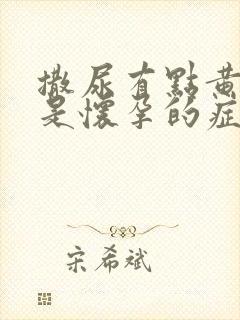 撒尿有點黃
是懷孕的症
宋希斌